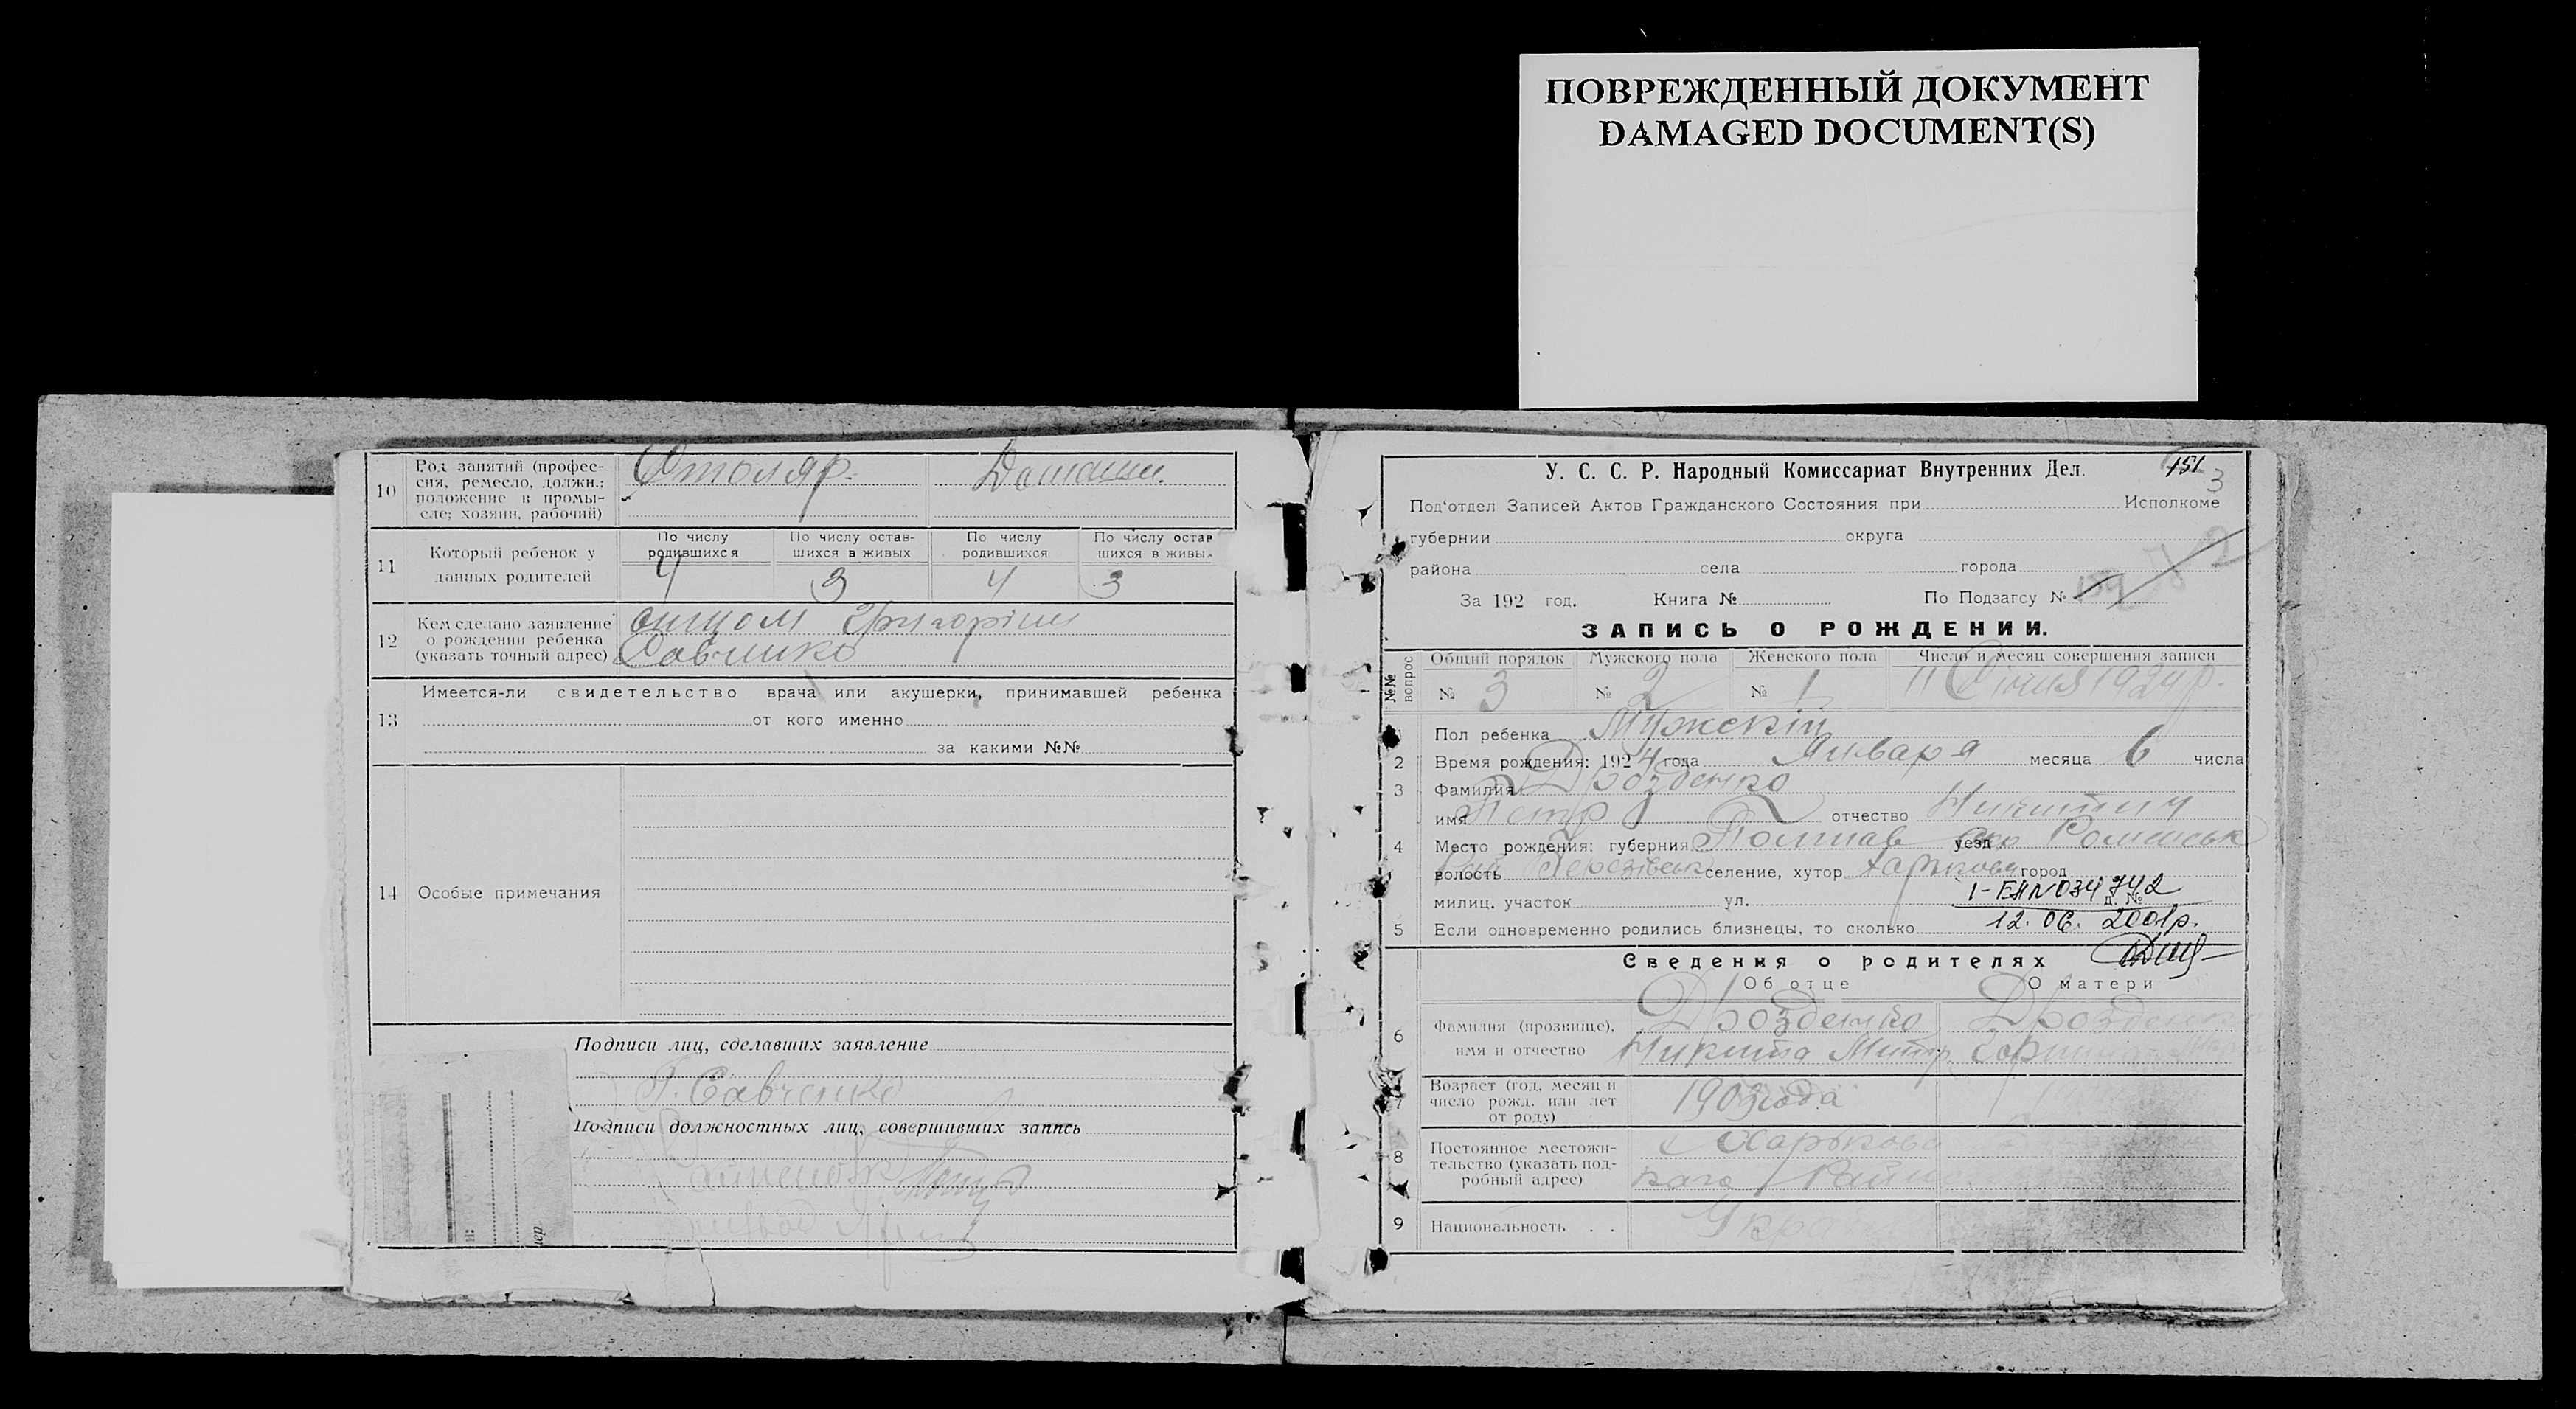 ПОВРЕЖДЕННЫЙ ДОКУМЕНТ
DAMAGED DOCUMENT(S)
10 Род занятий (профес-
сия, ремесло, должн.;
положение в промы-
сле; хозяин, рабочий)
Столяр. Домашн.
11 Который ребенок у
данных родителей
По числу родившихся По числу остав-шихся в живых По числу родившихся По числу остав шихся в живы.
4 3 4 3
12 Кем сделано заявление
о рождении ребенка
(указать точный адрес)
отцом Григорием
Савченко
13 Имеется-ли свидетельство врача или акушерки, принимавшей ребенка
от кого именно
за какими №№
14 Особые примечания
Подписи лиц, сделавших заявление
Г. Савченко
Подписи должностных лиц, совершивших запись
151
3
У. С. С. Р. Народный Комиссариат Внутренних Дел.
Под'отдел Записей Актов Гражданского Состояния при Исполкоме
губернии округа
района села города
За 192 год. Книга № По Подзагсу №
ЗАПИСЬ О РОЖДЕНИИ.
№№ вопрос Общий порядок Мужского пола Женского пола Число и месяц совершения записи
№ 3 № 2 № 1 11 1924 р.
Пол ребенка Мужский
2 Время рождения: 1924 года Января месяца 6 числа
3 Фамилия Дрозденко
имя Петр отчество Никитич
4 Место рождения: губерния Полтав уезд окр Роменськ
волость селение, хутор город
милиц. участок ул. д. №
I-ЕЯ N 034742
12.06.2001р.
5 Если одновременно родились близнецы, то сколько
Сведения о родителях
Об отце О матери
6 Фамилия (прозвище),
имя и отчество
Дрозденко Дрозденко
Никита Митр
7 Возраст (год, месяц и
число рожд. или лет
от роду)
1903 года
8 Постоянное местожи-
тельство (указать под-
робный адрес)
9 Национальность . .
Укра